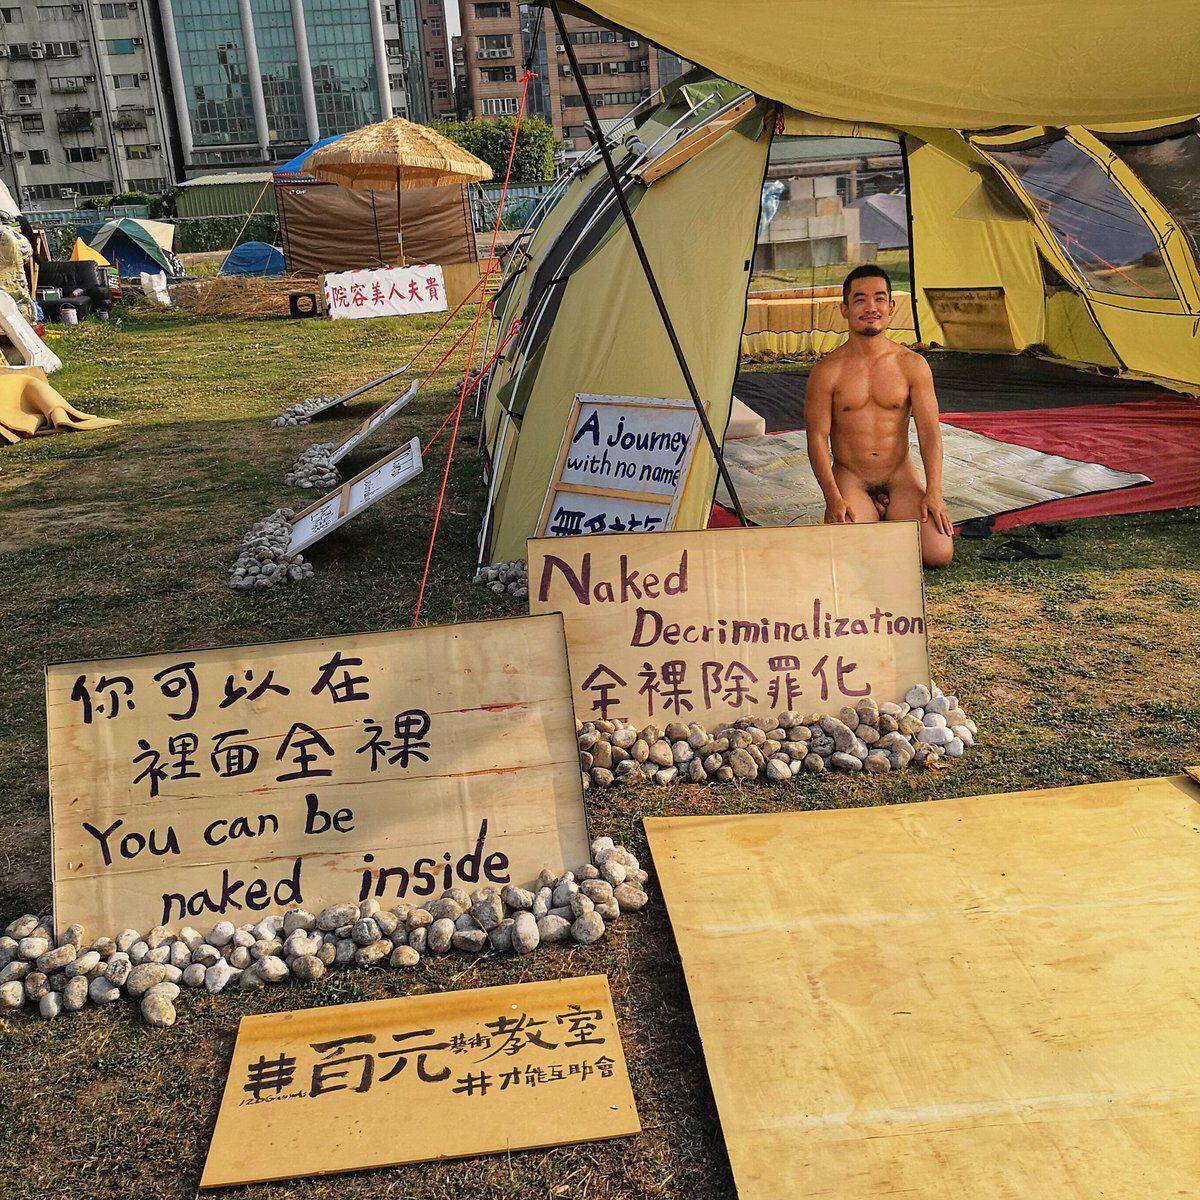 院容美人夫貴
A journey
with no name
Naked
Decriminalization
全裸除罪化
你可以在
裡面全裸
You can be
naked inside
#百元藝術教室
#才能互助會